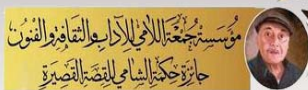 مؤسسة جمعة اللامي للآداب والثقافة والفنون
جائزة حكمة الشامي للقصة القصيرة